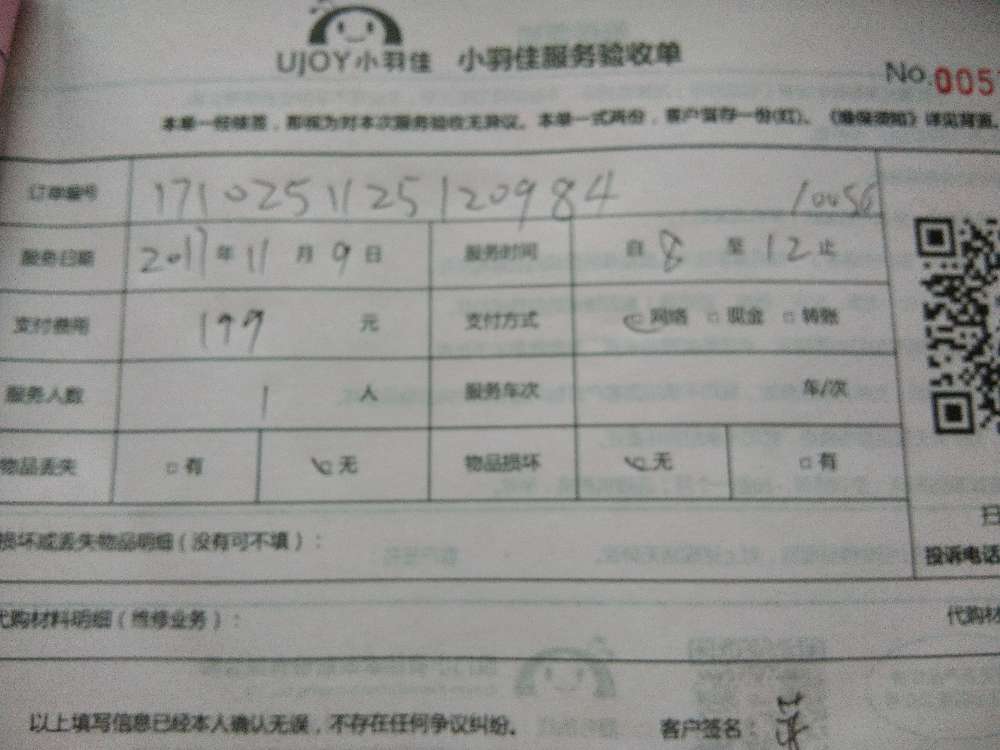 UJOY小羽佳 小羽佳服务验收单
No.005
本单一经填签，即视为对本次服务验收无异议。本单一式两份，客户留存一份(红)。《维保须知》详见背面。
订单编号 1710251125120984 10056
服务日期 2017年11月9日 服务时间 自8至12止
支付费用 199元 支付方式 网络 □现金 □转账
服务人数 1人 服务车次 车/次
物品丢失 □有 无 物品损坏 无 □有
损坏或丢失物品明细（没有可不填）：
扫
投诉电话
代购材料明细（维修业务）： 代购材
以上填写信息已经本人确认无误，不存在任何争议纠纷。 客户签名：